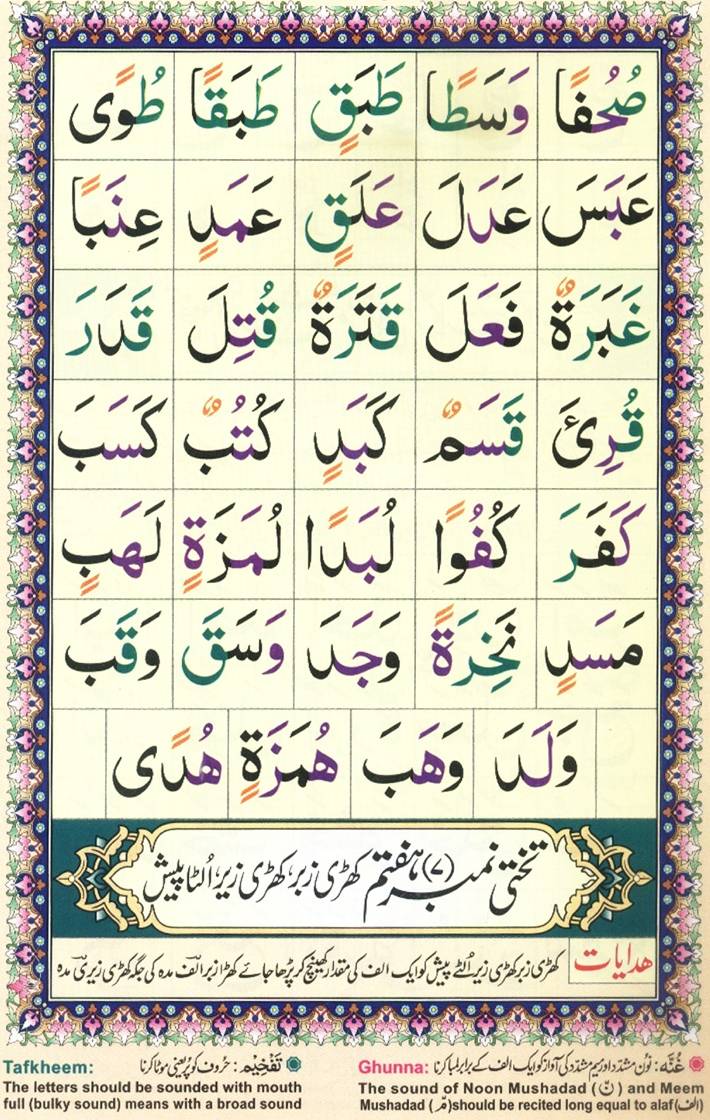 صُحُفًا وَسَطًا طَبَقٍ طَبَقًا طُوًى
عَبَسَ عَدَلَ عَلَقٍ عَمَدٍ عِنَبًا
غَبَرَةٌ فَعَلَ قَتَرَةٌ قُتِلَ قَدَرَ
قُرِئَ قَسَمٌ كَبَدٍ كُتُبٌ كَسَبَ
كَفَرَ كُفُوًا لُبَدًا لُمَزَةٍ لَهَبٍ
مَسَدٍ نَخِرَةً وَجَدَ وَسَقَ وَقَبَ
وَلَدَ وَهَبَ هُمَزَةٍ هُدًى
تختی نمبر (۷) ہفتم کھڑی زبر، کھڑی زیر، الٹا پیش
ھدایات کھڑی زبر کھڑی زیر اُلٹے پیش کو ایک الف کی مقدار کھینچ کر پڑھا جائے کھڑا زبر الف مدہ کی جگہ کھڑی زیر ی مدہ
غُنَّه: نُون مشدّد اور میم مشدّد کی آواز کو ایک الف کے برابر لمبا کرنا Ghunna:
The sound of Noon Mushadad (نّ) and Meem
Mushadad (مّ)should be recited long equal to alaf(الف)
تَفْخِيْم: حُروف کو پُر یعنی موٹا کرنا Tafkheem:
The letters should be sounded with mouth
full (bulky sound) means with a broad sound